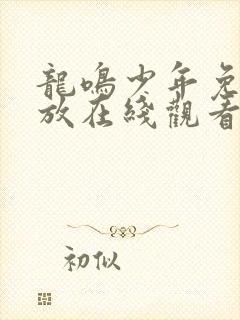 龍鳴少年免
放在綫觀看
初似